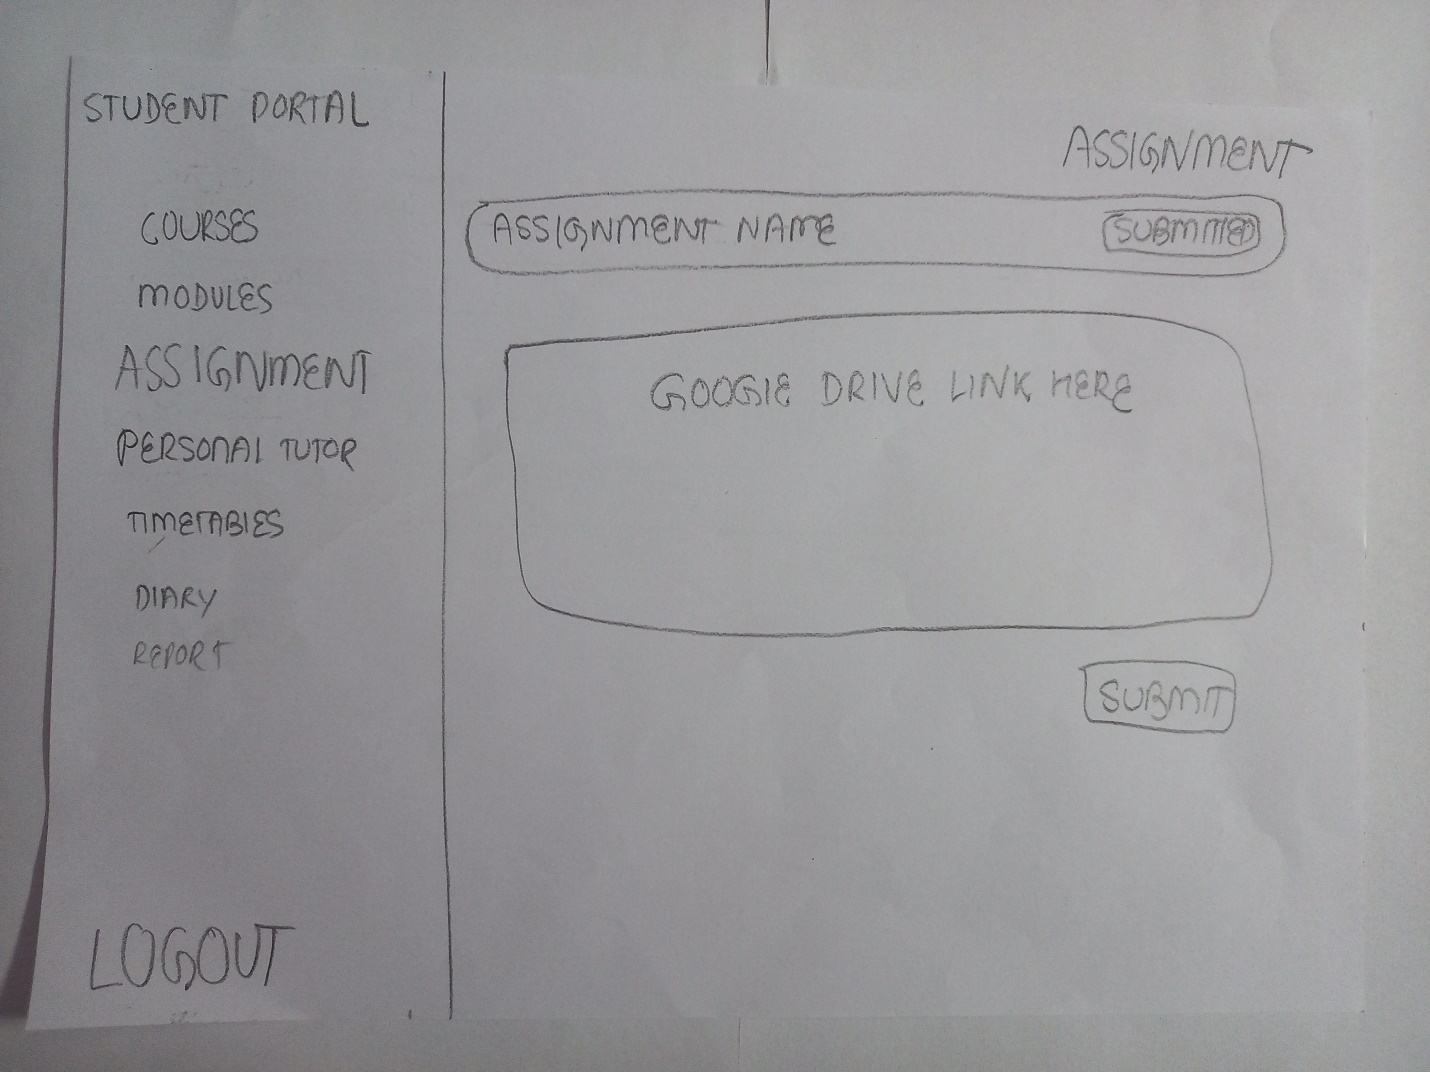 STUDENT PORTAL
COURSES
MODULES
ASSIGNMENT
PERSONAL TUTOR
TIMETABLES
DIARY
REPORT
LOGOUT
ASSIGNMENT
ASSIGNMENT NAME SUBMITTED
GOOGLE DRIVE LINK HERE
SUBMIT